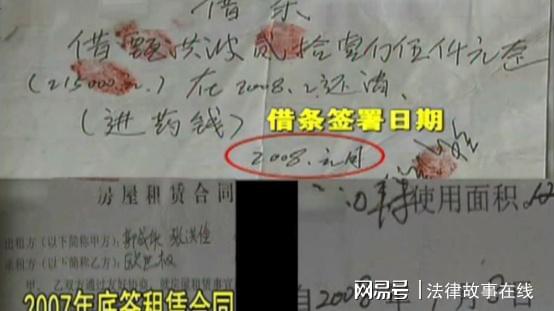 借条
借 洪波贰拾壹万伍仟元整
(215000.元.) 在2008.2还清.
(进药钱)
借条签署日期
2008.元月
房屋租赁合同
出租方(以下简称甲方):
承租方(以下简称乙方):
甲、乙双方通过友好协商,就房屋租赁事宜
2007年底签租赁合同
使用面积
自2008年 月8日
网易号 | 法律故事在线